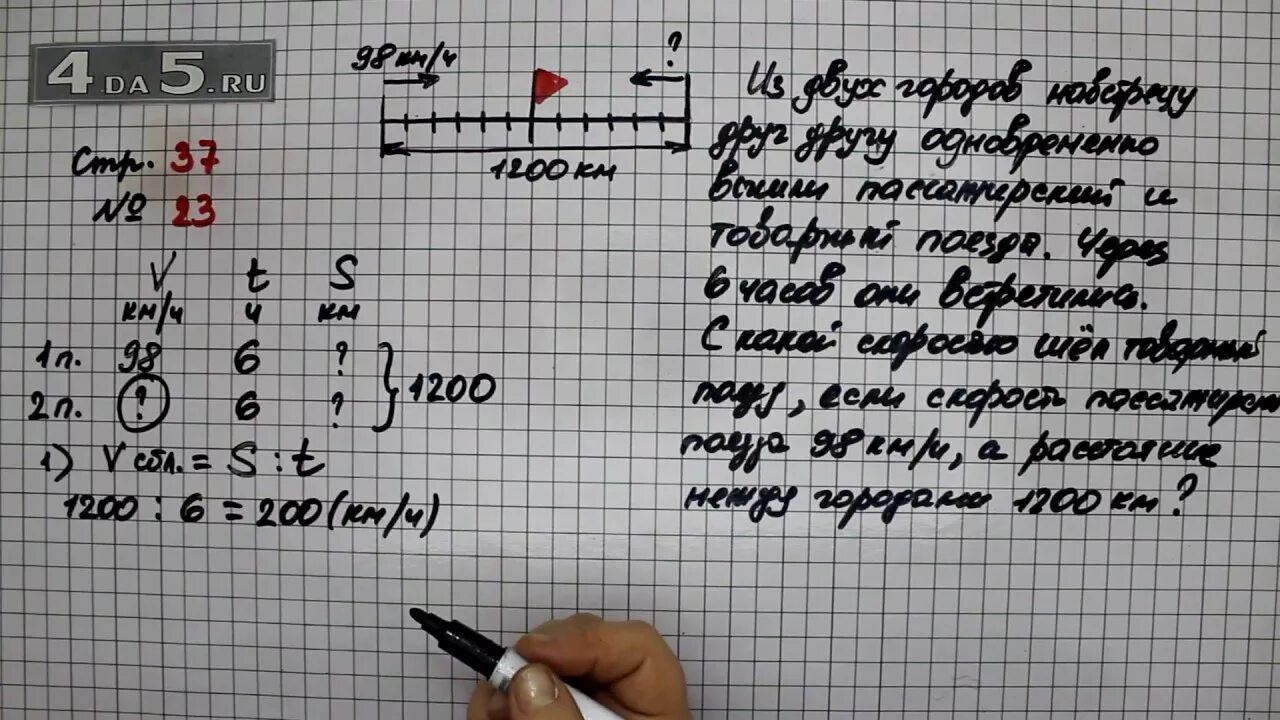 4 DA 5.RU
Стр. 37
№ 23
98 км/ч
?
1200 км
V t S
км/ч ч км
1 п. 98 6 ?
2 п. ? 6 ?
1200
1) V сбл. = S : t
1200 : 6 = 200 (км/ч)
Из двух городов навстречу
друг другу одновременно
вышли пассажирский и
товарный поезда. Через
6 часов они встретились.
С какой скоростью шёл товарный
поезд, если скорость пассажирск
поезда 98 км/ч, а расстояние
между городами 1200 км?